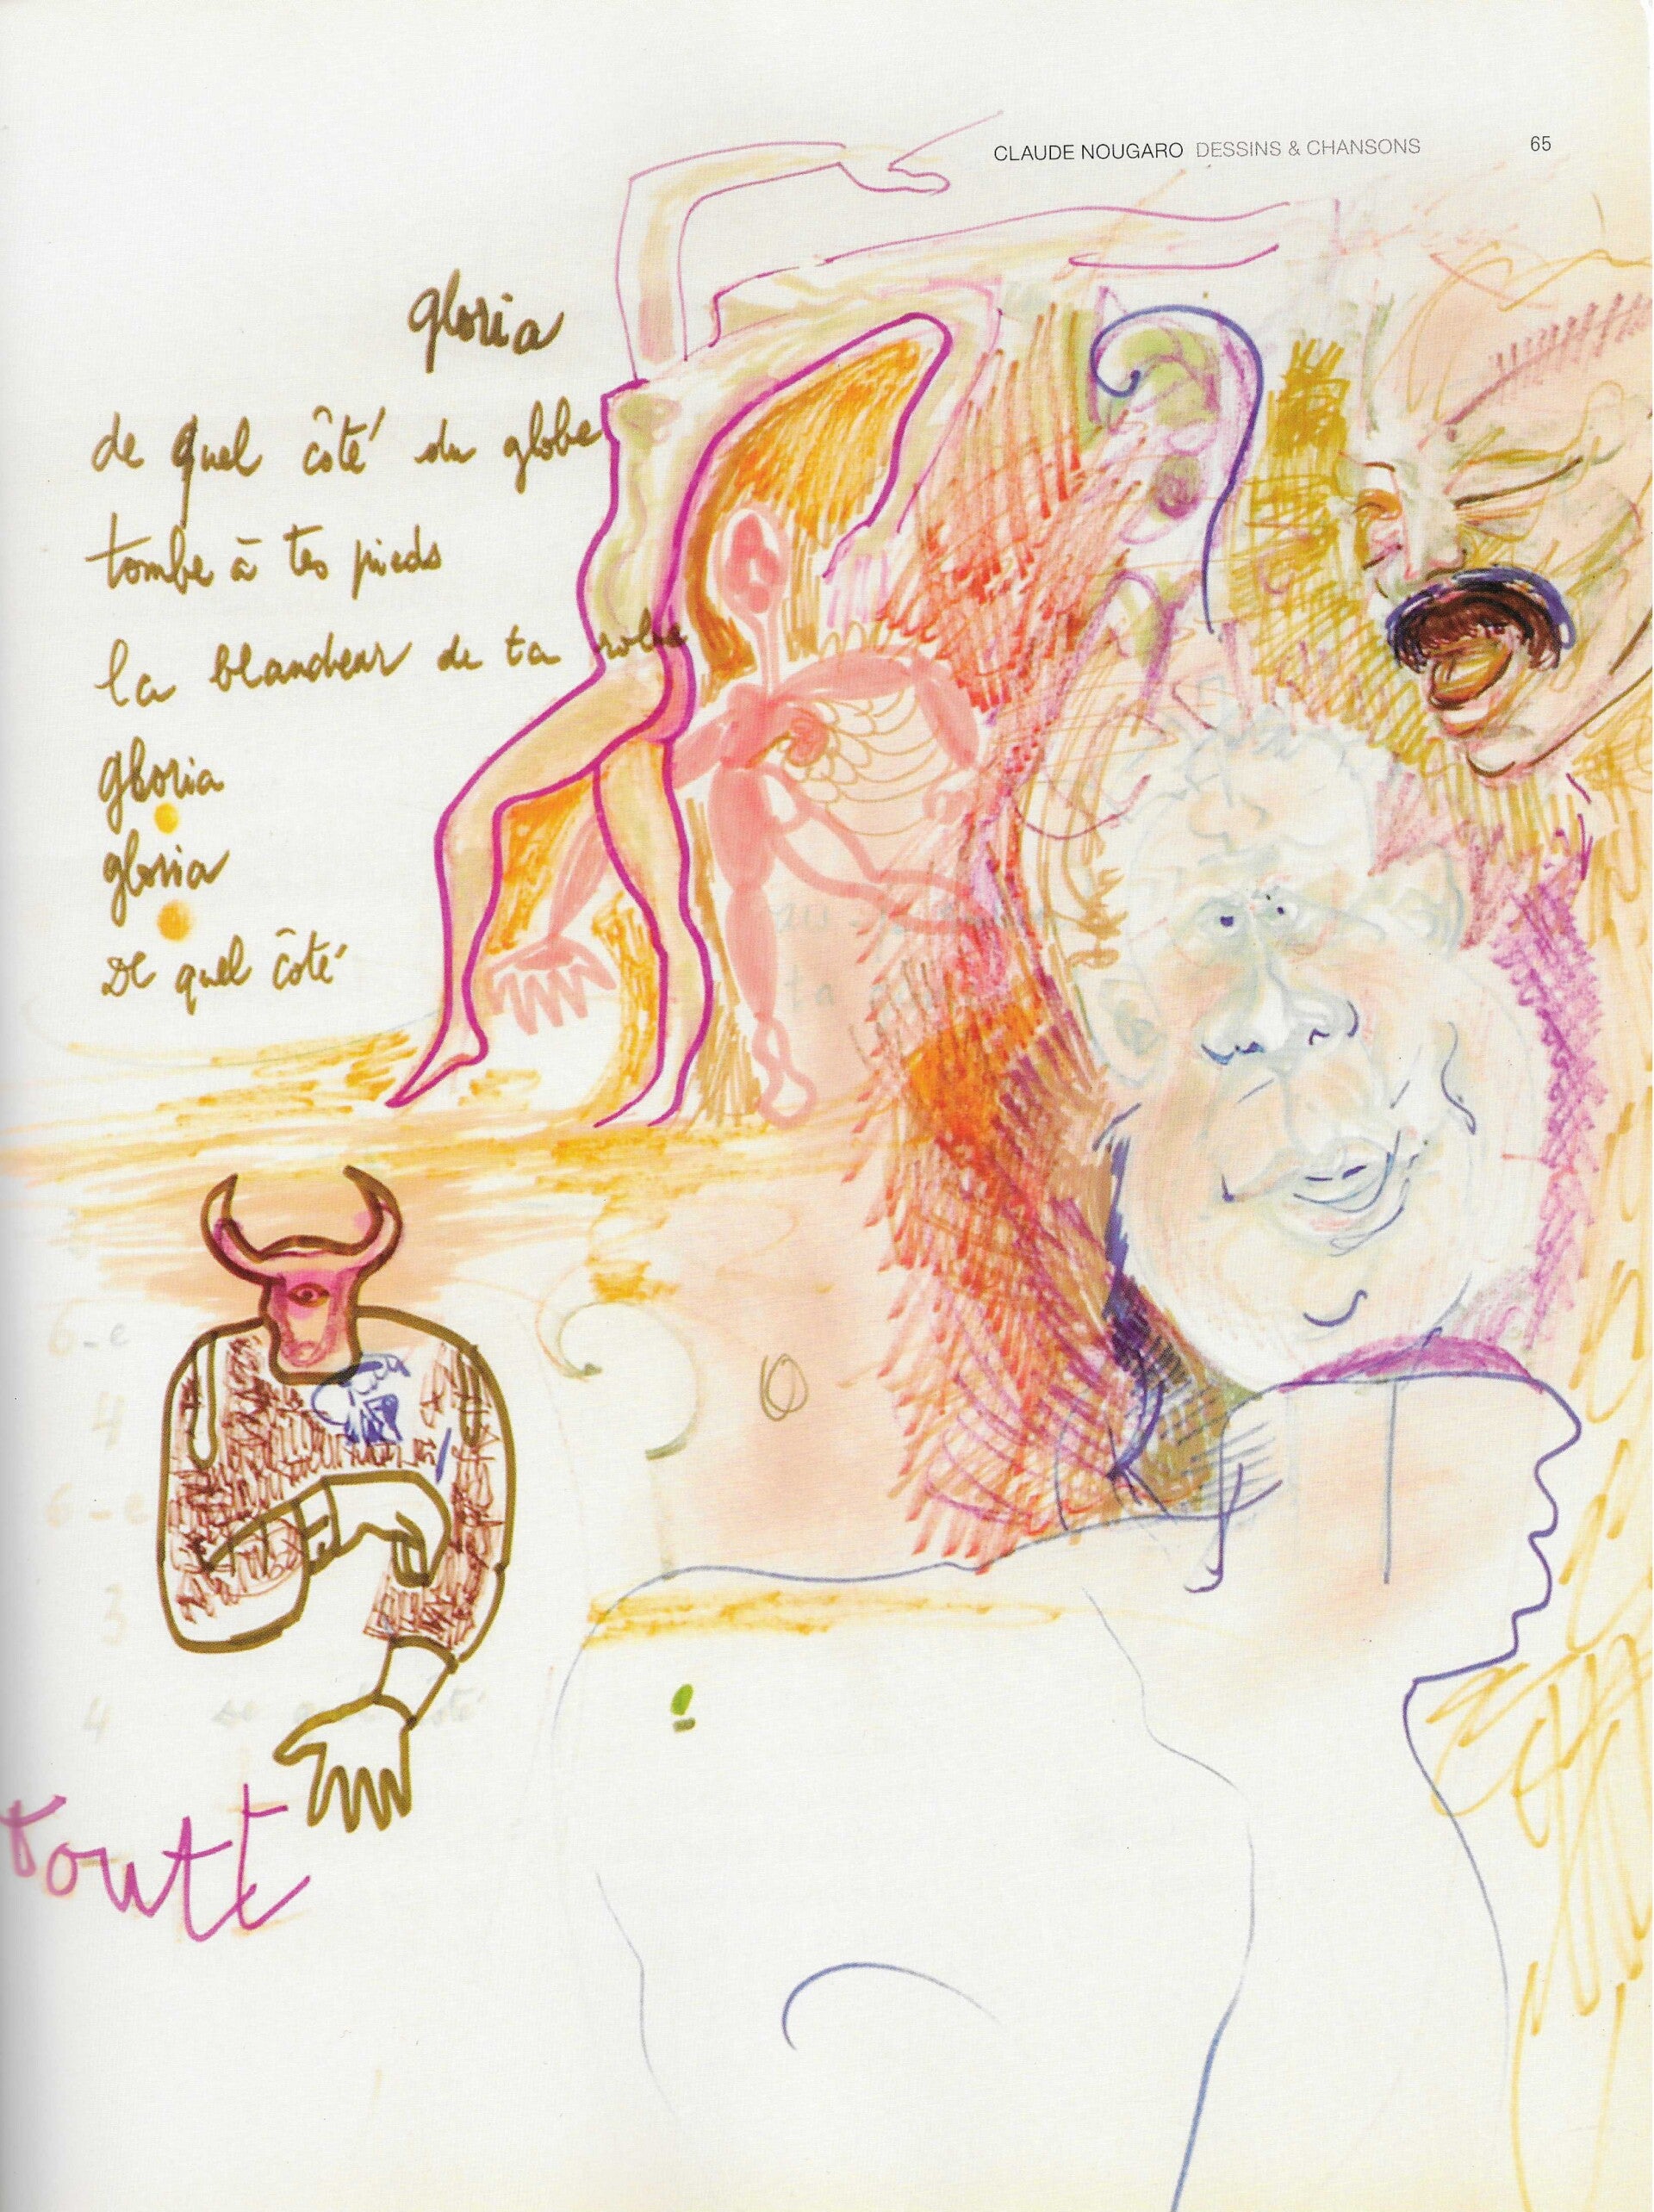 CLAUDE NOUGARO DESSINS & CHANSONS 65
gloria
de quel côté du globe
tombe à tes pieds
la blancheur de ta robe
gloria
gloria
De quel côté
6-e
4
6-e
3
4 de quel côté
toute